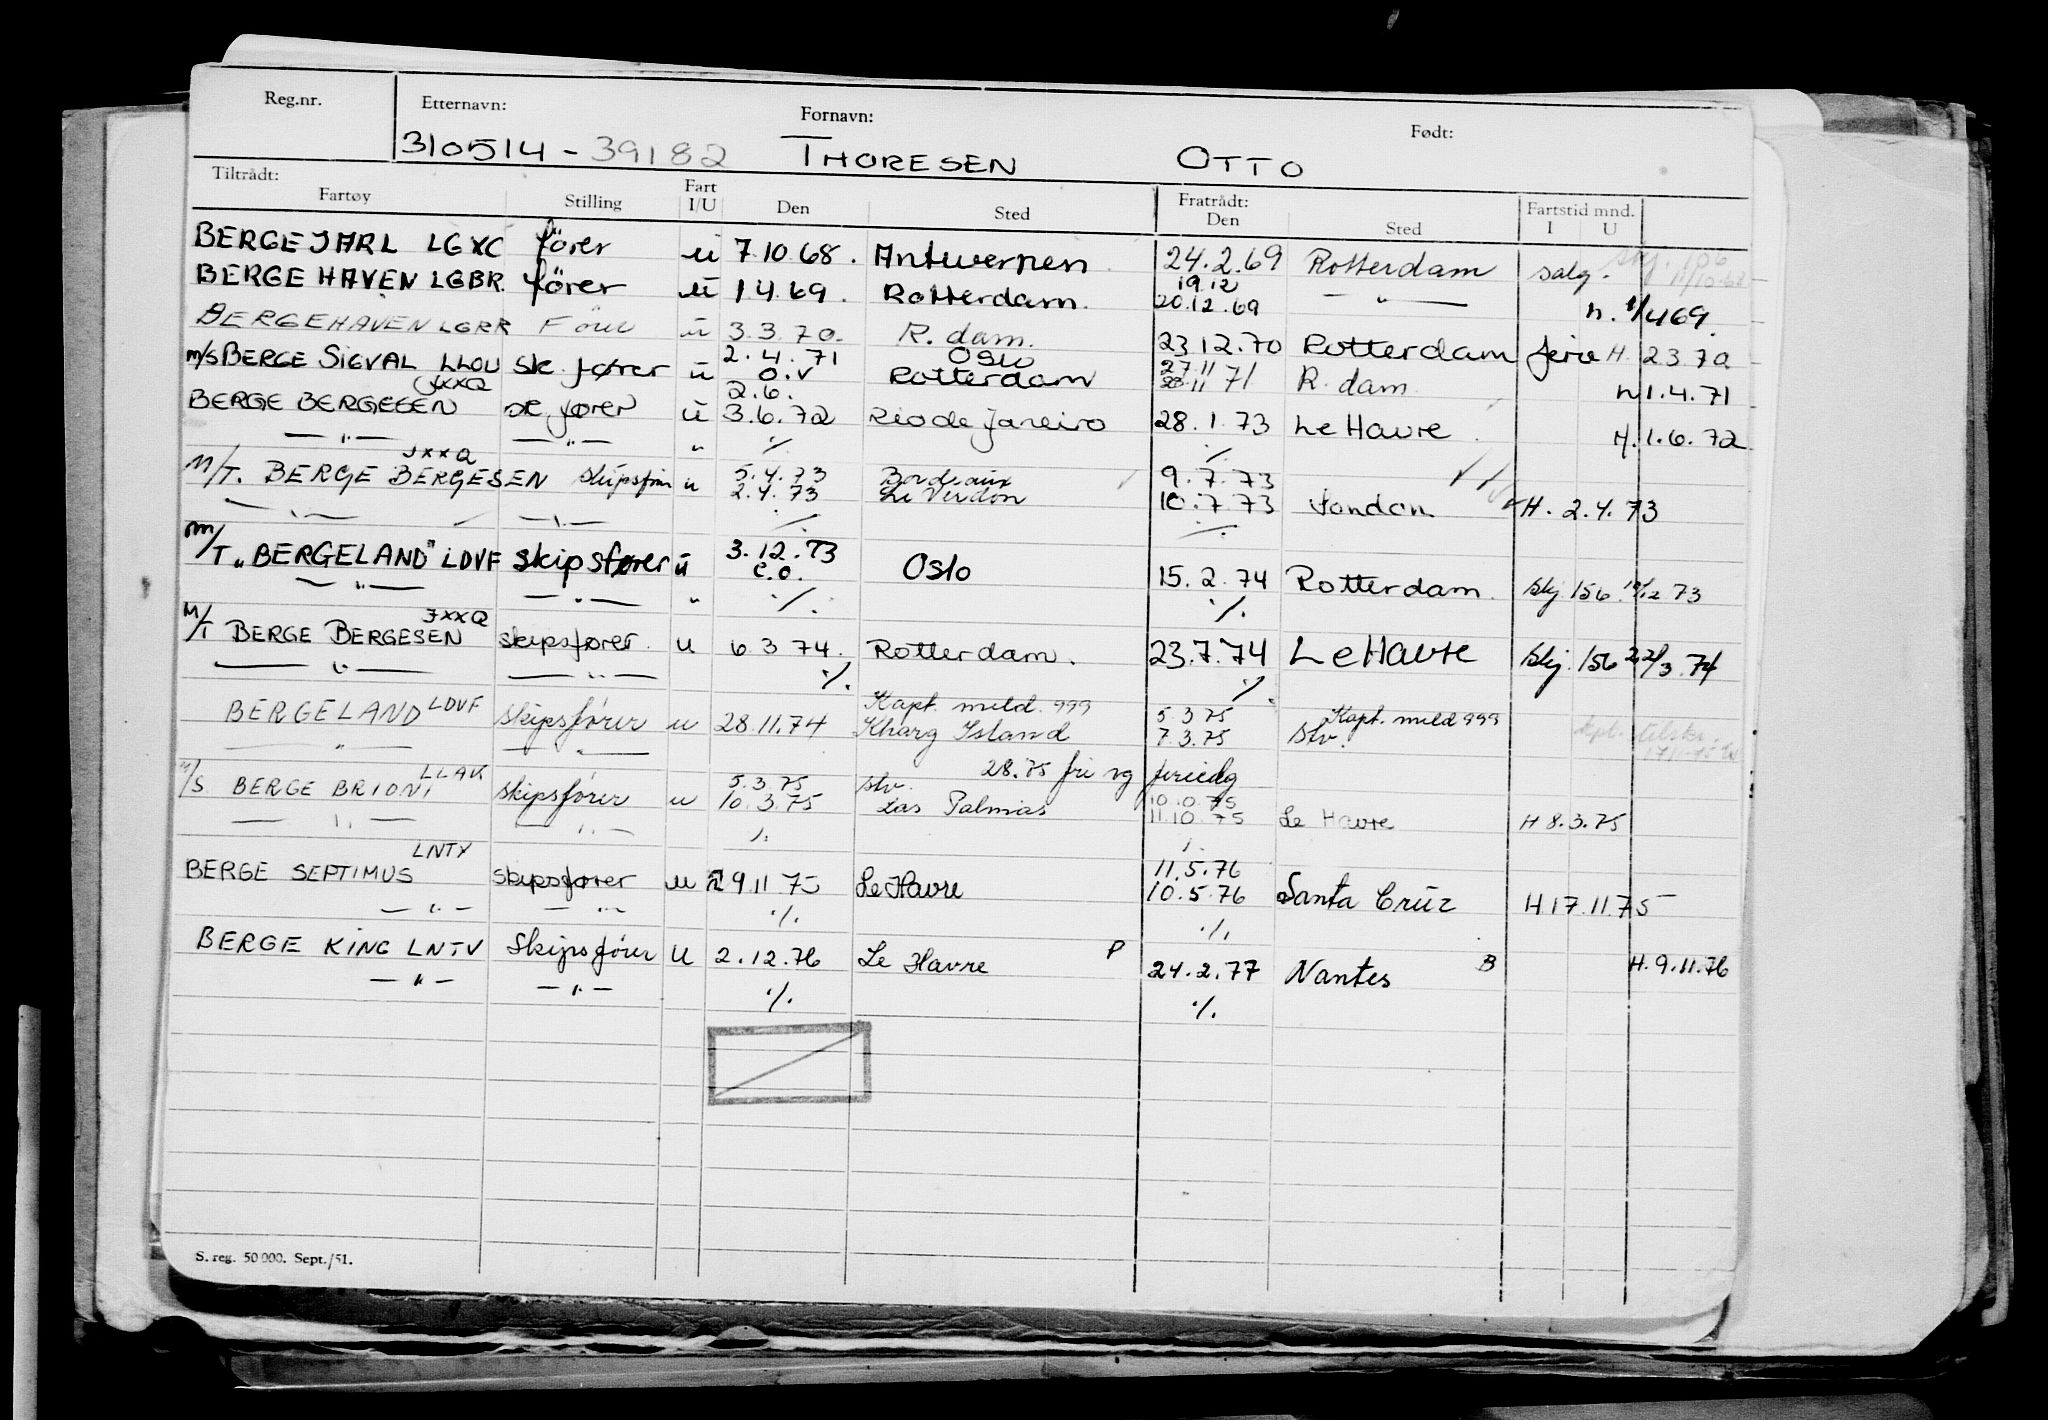 Reg.nr. Etternavn: Fornavn: Født:
310514-39182 THORESEN OTTO
Tiltrådt: Fratrådt: Fartstid mnd.
Fartøy Stilling Fart I/U Den Sted Den Sted I U
BERGE JARL LGXC fører u 7.10.68. Antwerpen 24.2.69 Rotterdam salg.
BERGE HAVEN LGBR fører u 1.4.69. Rotterdam. 19.12 20.12.69 —"— h. 1/469.
BERGEHAVEN LGRR Fører u 3.3.70. R.dam. 23.12.70 Rotterdam ferie H. 23.70
M/S BERGE SIGVAL LLOU sk.fører u 2.4.71 O.V Oslo Rotterdam 27.11 28.11 71 R.dam. h 1.4.71
BERGE BERGESEN JXXQ sk fører u 2.6. 3.6.72 Rio de Janeiro 28.1.73 Le Havre H. 1.6.72
—"— —"— " ./. ./.
M/T. BERGE BERGESEN JXXQ skipsfører u 5.4.73 Bordeaux 9.7.73
2.4.73 Le Verdon 10.7.73 London H. 2.4.73
—"— —"— ./. ./.
M/T "BERGELAND" LDVF skipsfører u 3.12.73 e.o. Oslo 15.2.74 Rotterdam. skj 156 12/12 73
—"— —"— " ./. ./.
M/T BERGE BERGESEN JXXQ skipsfører. u 6.3.74. Rotterdam. 23.7.74 Le Havre skj. 156 21/3.74
—"— —"— ./. ./.
BERGELAND LDVF skipsfører u 28.11.74 Kapt. meld. 999 Kharg Island 5.3.75 7.3.75 Kapt. meld 999 stv.
—"— —"— 28.75 fri og feriedg
M/S BERGE BRIONI LLAK skipsfører u 5.3.75 stv. 10.10.75
10.3.75 Las Palmas 11.10.75 Le Havre H 8.3.75
—"— —"— ./. ./.
BERGE SEPTIMUS LNTY skipsfører u 29.11 75 Le Havre 11.5.76 10.5.76 Santa Cruz H.17.11.75
—"— —"— ./. ./.
BERGE KING LNTV Skipsfører U 2.12.76 Le Havre P 24.2.77 Nantes B H.9.11.76
—"— —"— ./. ./.
S. reg. 50 000. Sept./51.